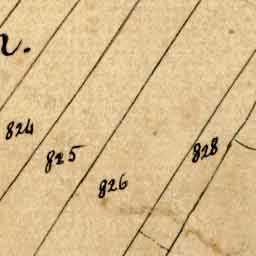 824
825
826
828